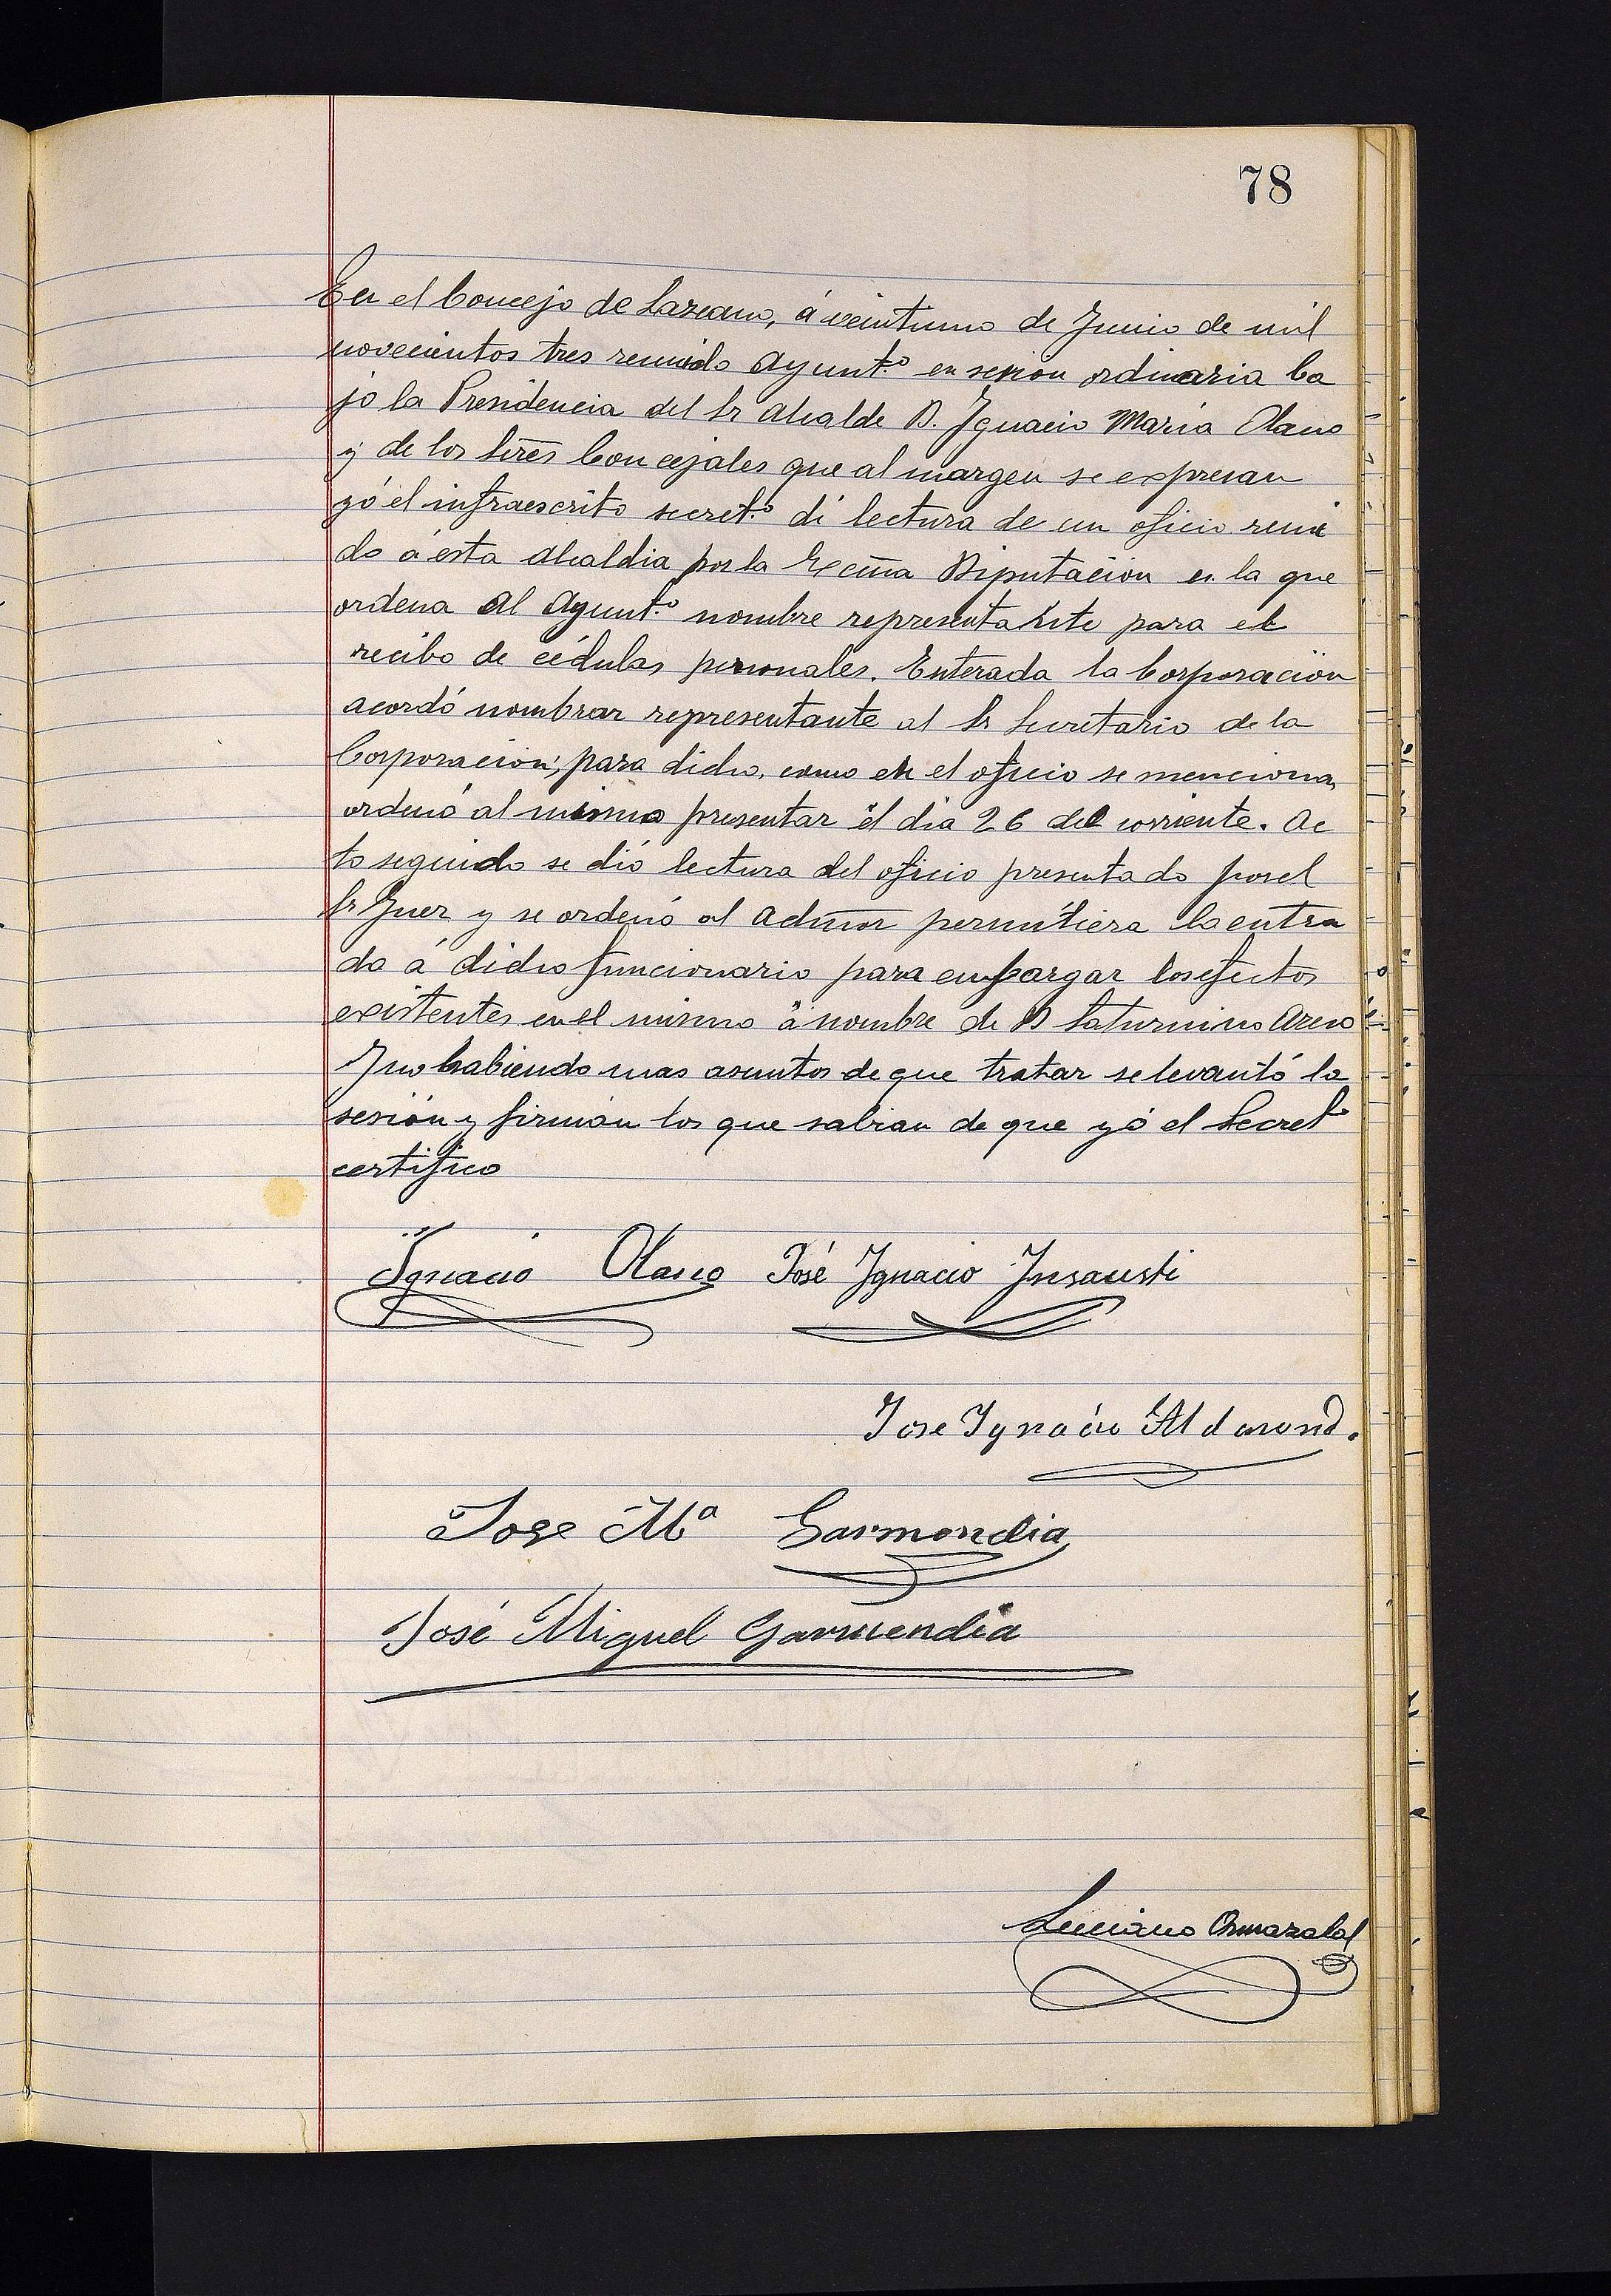 78
En el Concejo de Lazcano, á veintiuno de Junio de mil
novecientos tres reunido Ayunt.º en sesion ordinaria ba
jo la Presidencia del Sr Alcalde D. Ygnacio Maria Olano
y de los Sres Concejales que al margen se expresan
yó el infraescrito secret.º di lectura de un oficio remi
do á esta Alcaldia por la Excma Diputación en la que
ordena al Ayunt.º nombre representante para el
recibo de cédulas personales. Enterada la Corporación
acordó nombrar representante al Sr Secretario de la
Corporación, para dicho, como en el oficio se menciona,
ordenó al mismo presentar el dia 26 del corriente. Ac
to seguido se dió lectura del oficio presentado por el
Sr Juez y se ordenó al Admor permitiera la entra
da á dicho funcionario para embargar los efectos
existentes en el mismo á nombre de D Saturnino
Y no habiendo mas asuntos de que tratar se levantó la
sesión y firman los que sabian de que yó el Secret.º
certifico
Ygnacio Olano José Ygnacio Ynsausti
Jose Ygnacio
Jose Mª Garmendia
José Miguel Garmendia
Luciano Ormazabal